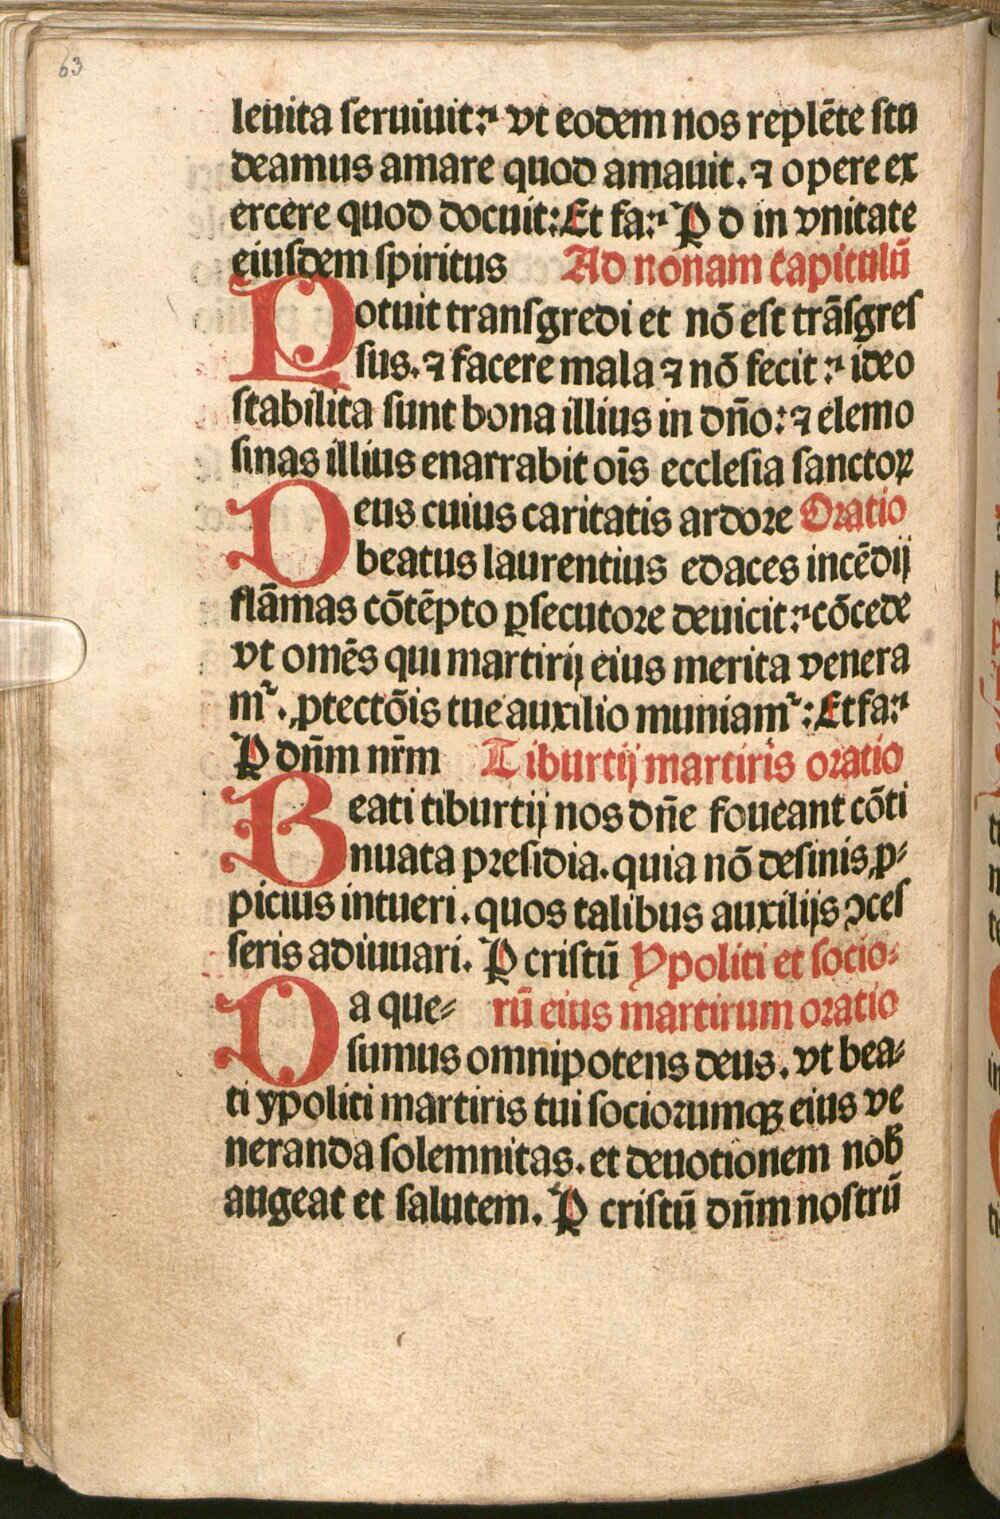 63
leuita ſeruiuit: vt eodem nos replēte ſtu
deamus amare quod amauit. ⁊ opere ex
ercere quod docuit: Et fa: P d in vnitate
eiuſdem ſpiritus Ad nonam capitulū
Potuit tranſgredi et nō eſt trāſgreſ
ſus. ⁊ facere mala ⁊ nō fecit: ideo
ſtabilita ſunt bona illius in dño: ⁊ elemo
ſinas illius enarrabit oīs eccleſia ſanctoꝝ
Deus cuius caritatis ardore Oratio
beatus laurentius edaces incēdij
flāmas cōtēpto ꝑſecutore deuicit: cōcede
vt omēs qui martirij eius merita venera
mᷣ. ꝓtectōis tue auxilio muniamᷣ: Et fa:
P dn̄m nr̄m Tiburtij martiris oratio
Beati tiburtij nos dñe foueant cōti
nuata preſidia. quia nō deſinis ꝓ-
picius intueri. quos talibus auxilijs ↄceſ
ſeris adiuuari. P criſtū Ypoliti et ſocio-
Da que- rū eius martirum oratio
ſumus omnipotens deus. vt bea-
ti ypoliti martiris tui ſociorumqꝫ eius ve
neranda ſolemnitas. et deuotionem nob̄
augeat et ſalutem. P criſtū dn̄m noſtrū